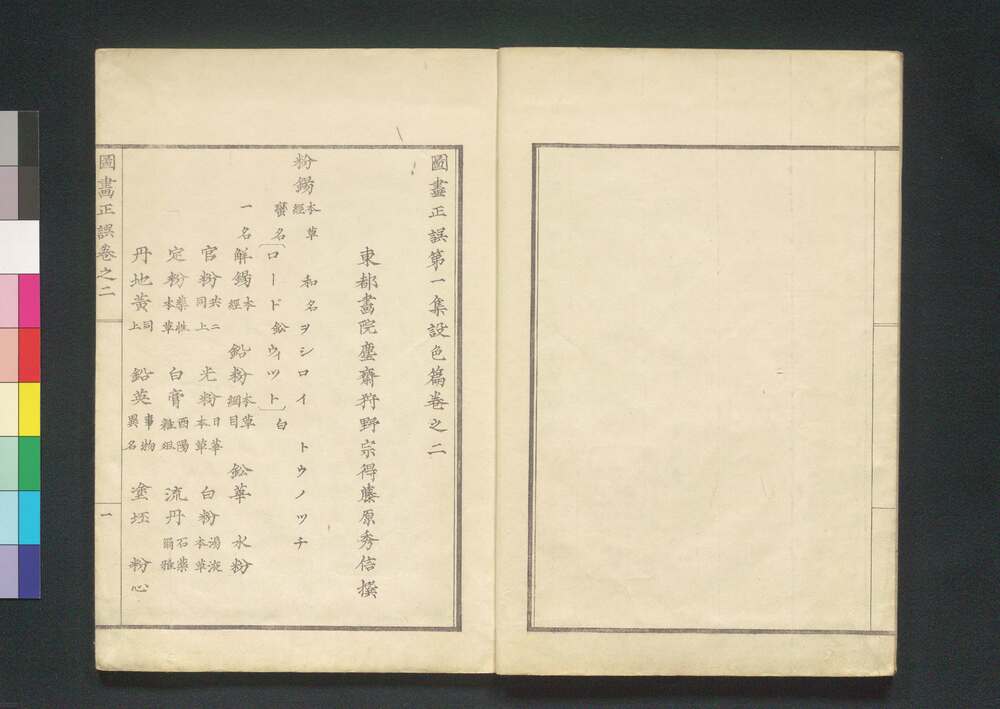 圖畫正誤第一集設色篇卷之二
東都畫院塵齋狩野宗得藤原秀信撰
粉錫 本草經 和名ヲシロイ トウノツチ
蠻名〔ロードウィツト〕鉛白
一名 解錫 本經 鉛粉 本草綱目 鉛華 水粉
官粉 共ニ同上 光粉 日華本草 白粉 湯液本草
定粉 藥性本草 白膏 酉陽雜俎 流丹 石藥爾雅
丹地黃 同上 鉛英 事物異名 塗坯 粉心
圖畫正誤卷之二
一